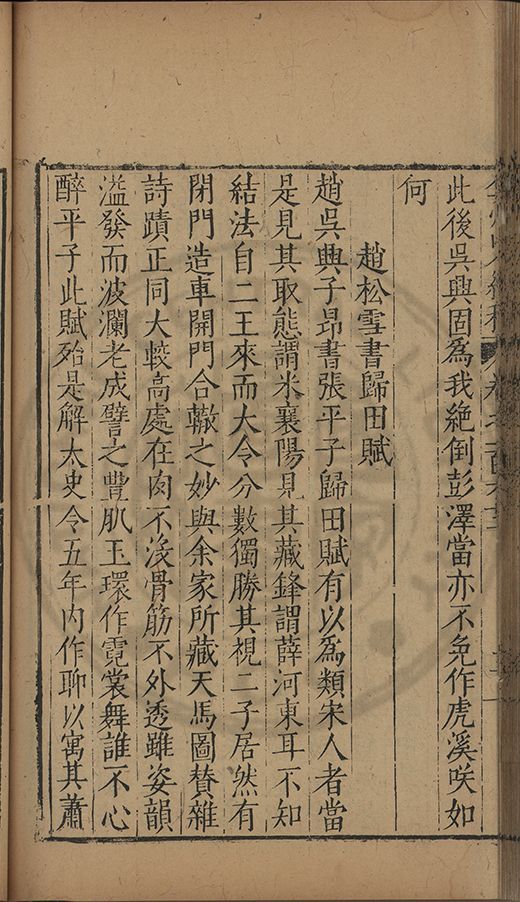 此後吳興固為我絶倒彭澤當亦不免作虎溪咲如
何
趙松雪書歸田賦
趙吳興子昂書張平子歸田賦有以為類宋人者當
是見其取態謂米襄陽見其藏鋒謂薛河東耳不知
結法自二王來而大令分數獨勝其視二子居然有
閉門造車開門合轍之妙與余家所藏天馬圖賛雜
詩蹟正同大較高處在肉不沒骨筋不外透雖姿韻
溢發而波瀾老成譬之豐肌玉環作霓裳舞誰不心
醉平子此賦殆是解太史令五年內作聊以寓其蕭